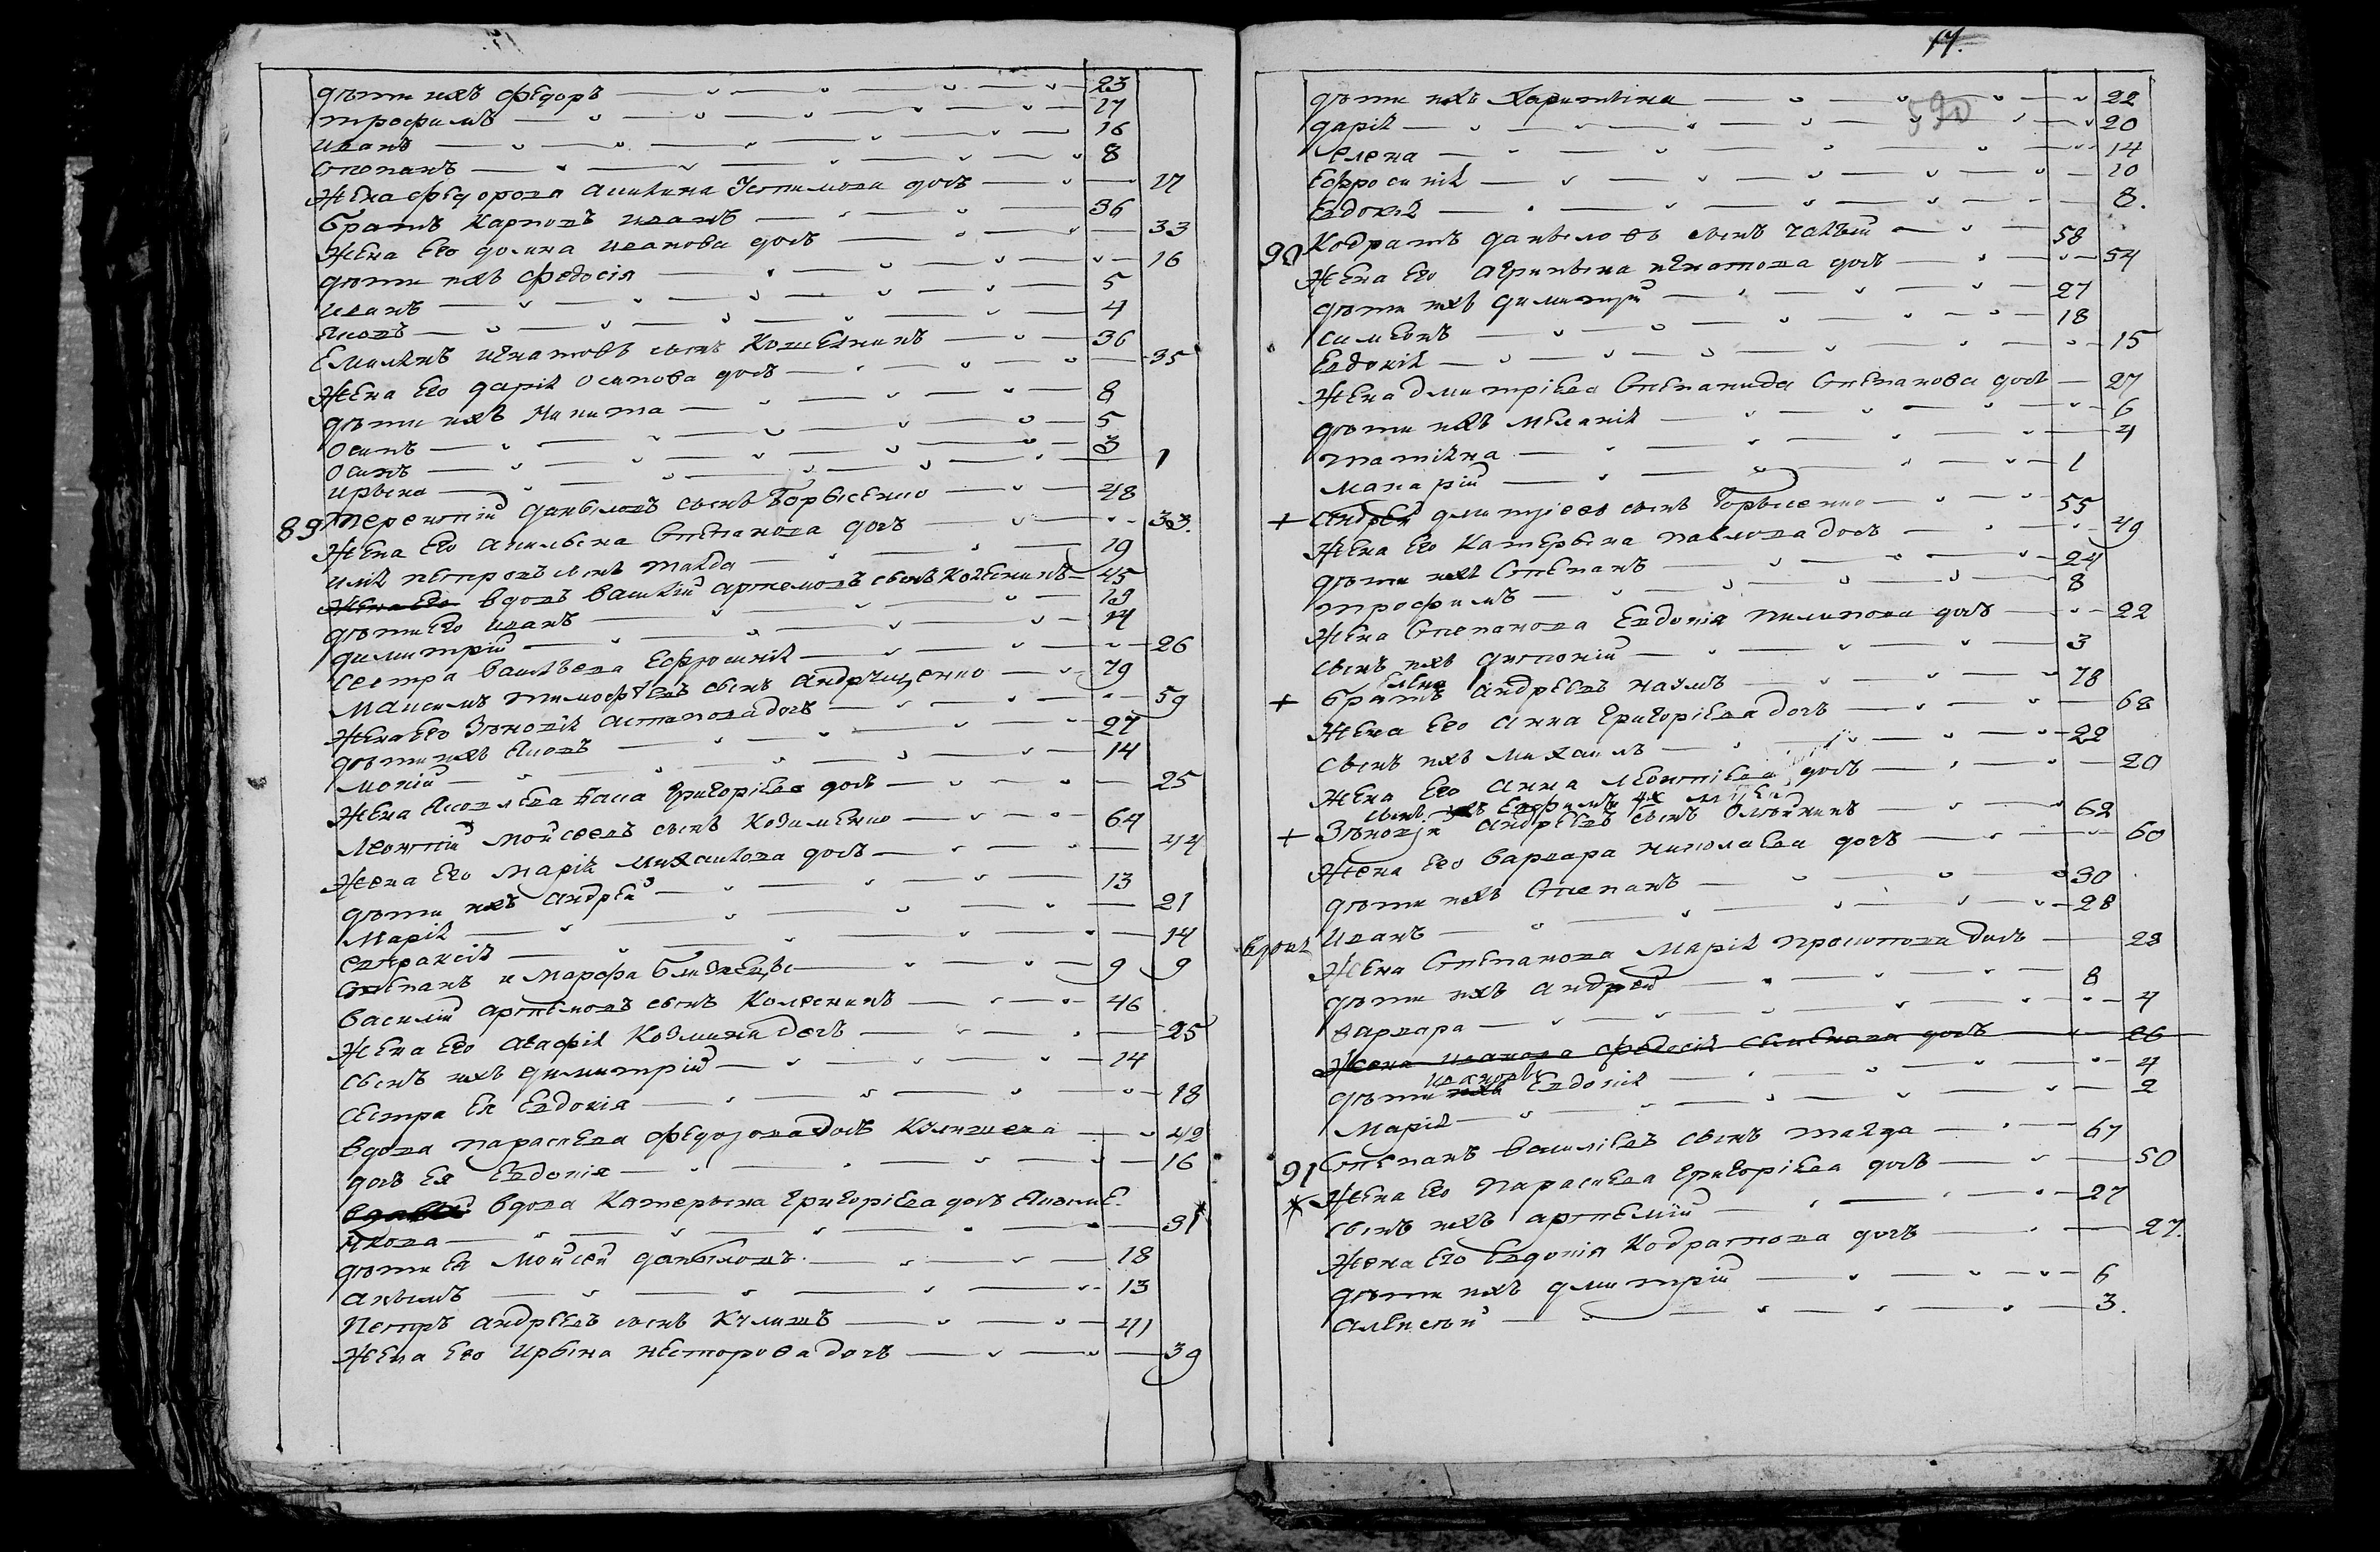 дѣти ихъ Федоръ 23
Трофимъ 17
Иванъ 16
Степанъ 8
Жена Федорова Акилина Устимова дочъ 17
братъ Карповъ Иванъ 36
Жена Его Домна Иванова дочъ 33
дѣти ихъ Федосія 16
Иванъ 5
Яковъ 4
Емилянъ Игнатовъ сынъ 36
Жена Его Дарія Осипова дочъ 35
дѣти ихъ Никита 8
Осипъ 5
Осипъ 3
Ирына 1
89 Терентій Даныловъ сынъ Борысенко 48
Жена Его Акилына Степанова дочъ 33.
Илія Петровъ сынъ Тагда 19
Жена Его вдовъ Василій Артемовъ сынъ Колесникъ 45
дѣти Его Иванъ 19
Димитрій 14
сестра Васильева Ефросинія 26
Максимъ Тимофѣевъ сынъ Андрущенко 79
Жена Его Зѣновія Астапова дочъ 59
дѣти ихъ Яковъ 27
Мокій 14
Жена Яковлева Васа Григоріева дочъ 25
Леонтій Мойсеевъ сынъ Козменко 64
Жена Его Марія Михайлова дочъ 44
дѣти ихъ Андрей 13
Марія 21
Евпраксія 14
Степанъ и Марфа близнецы 9 9
Василій Артемовъ сынъ Колесникъ 46
Жена Его Агафія Козмина дочъ 25
сынъ ихъ Димитрій 14
сестра Ея Евдокія 18
вдова Параскева Федорова дочъ Кулишева 42
дочъ Ея Евдокія 16
вдова Катерына Григоріева дочъ
нкова 31
дѣти Ея Мойсей Даныловъ 18
Акымъ 13
Петръ Андреевъ сынъ Кулишъ 41
Жена Его Ирына Несторова дочъ 39
17.
590
дѣти ихъ Харитына 22
Дарія 20
Елена 14
Ефросинія 10
Евдокія 8.
90 Кодратъ Даныловъ сынъ 58
Жена Его Агрипына Игнатова дочъ 54
дѣти ихъ Димитрій 27
Симеонъ 18
Евдокія 15
Жена Дмитріева Степанида Степанова дочъ 27
дѣти ихъ Меланія 6
Татіяна 4
Макарій 1
+ Андрей Дмитріевъ сынъ Борысенко 55
Жена Его Катерына Павлова дочъ 49
дѣти ихъ Степанъ 24
Трофимъ 8
Жена Степанова Евдокія Пилипова дочъ 22
сынъ ихъ Антоній 3
Елена
+ братъ Андреевъ Наумъ 78
Жена Его Анна Григоріева дочъ 68
сынъ ихъ Михаилъ 22
Жена Его Анна Леонтіева дочъ 20
сынъ ихъ Евфимъ
+ Зѣновій Андреевъ сынъ Олѣйникъ 62
Жена Его Варвара Николаева дочъ 60
дѣти ихъ Степанъ 30
вдовъ Иванъ 28
Жена Степанова Марія Прокопова дочъ 28
дѣти ихъ Андрей 8
Варвара 4
Жена Иванова Федосія дочъ 26
Ивановы
дѣти ихъ Евдокія 4
Марія 2
91 Степанъ Василіевъ сынъ Тагда 67
* Жена Его Параскева Григоріева дочъ 50
сынъ ихъ Артемій 27
Жена Его Евдокія Кодратова дочъ 27.
дѣти ихъ Дмитрій 6
Алексѣй 3.